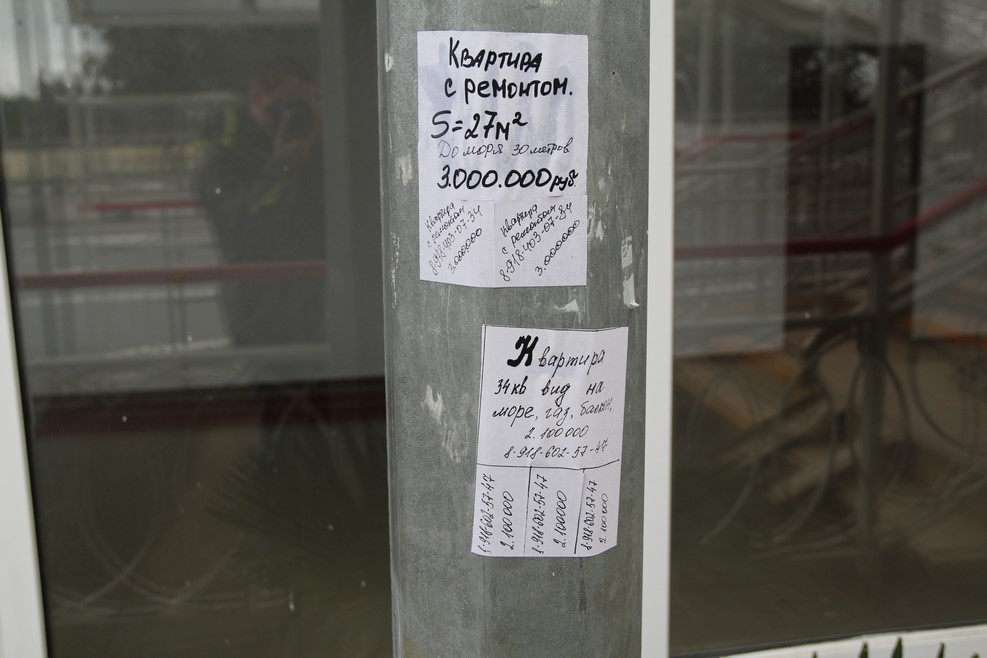 Квартира
с ремонтом.
S=27м²
До моря 30 метров
3.000.000 руб.
Квартира
с ремонтом
8-918-403-07-34
3.000000
Квартира
с ремонтом
8-918-403-07-34
3.000000
Квартира
34кв вид на
море, газ, балкон,
2.100000
8-918-602-57-47
8-918-602-57-47
2.100000
8-918-602-57-47
2.100000
8-918-602-57-47
2.100000